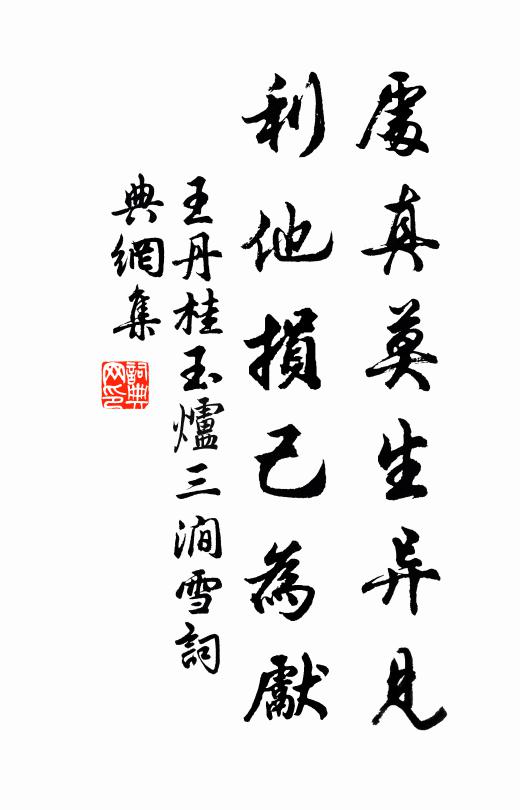 處真莫生异見
利他損己為獻
王丹桂玉爐三澗雪詞
典網集
詞典網印